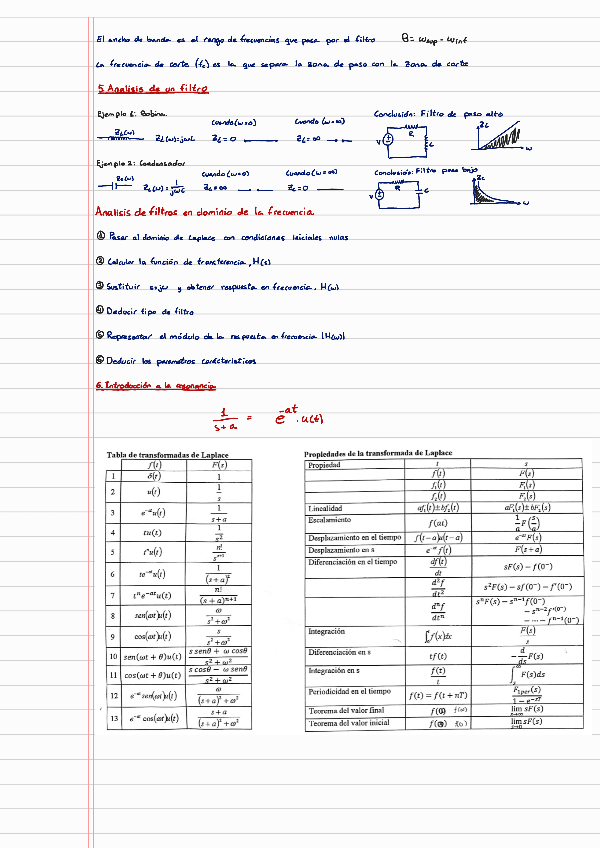 El ancho de banda es el rango de frecuencias que pasa por el filtro B = ωsup - ωinf
La frecuencia de corte (fc) es la que separa la zona de paso con la zona de corte
5. Analisis de un filtro
Ejemplo 1: Bobina. Cuando (ω=0) Cuando (ω=∞) Conclusión: Filtro de paso alto
ZL(ω) ZL(ω)=jωL ZL=0 ZL=∞ V R L ZL ω
Ejemplo 2: Condensador Cuando (ω=0) Cuando (ω=∞) Conclusión: Filtro paso bajo
Zc(ω) Zc(ω)=1/jωC Zc=∞ Zc=0 V R C Zc ω
Analisis de filtros en dominio de la frecuencia
① Pasar al dominio de Laplace con condiciones iniciales nulas
② Calcular la función de transferencia, H(s)
③ Sustituir s=jω y obtener respuesta en frecuencia. H(ω)
④ Deducir tipo de filtro
⑤ Representar el módulo de la respuesta en frecuencia |H(ω)|
⑥ Deducir los parametros carácteristicos
6. Introducción a la resonancia
1/(s+a) = e^-at · u(t)
Tabla de transformadas de Laplace
f(t) F(s)
1 δ(t) 1
2 u(t) 1/s
3 e^-at u(t) 1/(s+a)
4 tu(t) 1/s²
5 t^n u(t) n!/s^(n+1)
6 te^-at u(t) 1/(s+a)²
7 t^n e^-at u(t) n!/(s+a)^(n+1)
8 sen(ωt)u(t) ω/(s²+ω²)
9 cos(ωt)u(t) s/(s²+ω²)
10 sen(ωt + θ)u(t) (s senθ + ω cosθ)/(s² + ω²)
11 cos(ωt + θ)u(t) (s cosθ − ω senθ)/(s² + ω²)
12 e^-at sen(ωt)u(t) ω/((s+a)²+ω²)
13 e^-at cos(ωt)u(t) (s+a)/((s+a)²+ω²)
Propiedades de la transformada de Laplace
Propiedad t s
f(t) F(s)
f₁(t) F₁(s)
f₂(t) F₂(s)
Linealidad af₁(t)±bf₂(t) aF₁(s)±bF₂(s)
Escalamiento f(at) 1/a F(s/a)
Desplazamiento en el tiempo f(t−a)u(t−a) e^-as F(s)
Desplazamiento en s e^-at f(t) F(s+a)
Diferenciación en el tiempo df(t)/dt sF(s) − f(0⁻)
d²f/dt² s²F(s) − sf(0⁻) − f'(0⁻)
dⁿf/dtⁿ sⁿF(s) − sⁿ⁻¹f(0⁻)
− sⁿ⁻²f'(0⁻)
− ⋯ − fⁿ⁻¹(0⁻)
Integración ∫₀ᵗ f(x)dx F(s)/s
Diferenciación en s tf(t) −d/ds F(s)
Integración en s f(t)/t ∫ₛ^∞ F(s)ds
Periodicidad en el tiempo f(t) = f(t + nT) F₁per(s)/(1 − e^-sT)
Teorema del valor final lim sF(s)
Teorema del valor inicial f(0) lim sF(s)